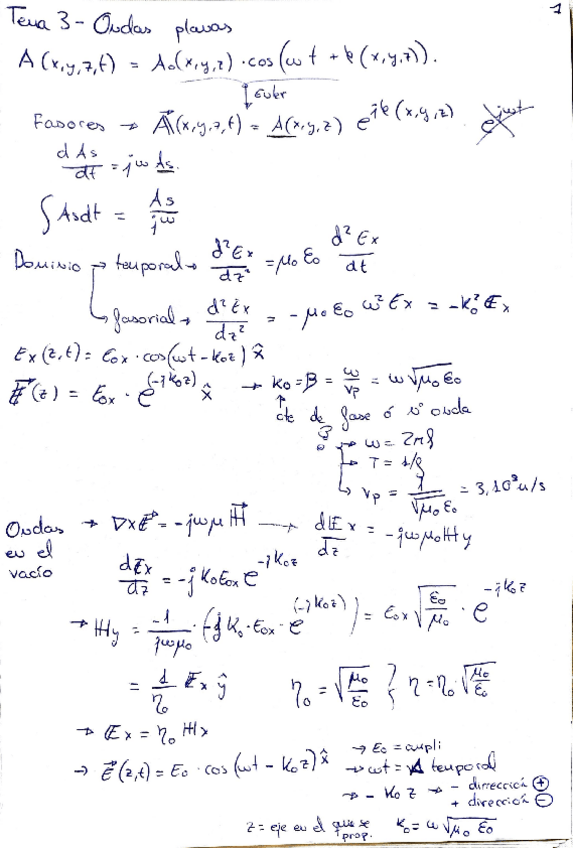 1
Tema 3 - Ondas planas
A(x,y,z,t) = A₀(x,y,z) · cos(ωt + k(x,y,z)).
↓ Euler
Fasores → A⃗(x,y,z,t) = A(x,y,z) e^{jk(x,y,z)} · e^{jωt}
dAs/dt = jω As.
∫As dt = As/jω
Dominio → temporal → d²Ex/dz² = μ₀ε₀ d²Ex/dt
↳ fasorial → d²Ex/dz² = -μ₀ε₀ω²Ex = -k₀²Ex
Ex(z,t) = E₀x · cos(ωt - k₀z) x̂
E⃗(z) = E₀x · e^{(-jk₀z)} x̂ → k₀ = β = ω/vp = ω√μ₀ε₀
↑
cte de fase ó nº onda
→ ω = 2πf
→ T = 1/f
↳ vp = 1/√μ₀ε₀ = 3,10⁸m/s
Ondas en el vacío → ∇x E⃗ = -jωμ H⃗ → dEx/dz = -jωμ₀Hy
dEx/dz = -jk₀E₀x e^{-jk₀z}
→ Hy = -1/jωμ₀ · (-jk₀ · E₀x · e^{(-jk₀z)}) = E₀x √(ε₀/μ₀) · e^{-jk₀z}
= 1/η₀ Ex ŷ η₀ = √(μ₀/ε₀) } η = η₀ · √(μ₀/ε₀)
→ Ex = η₀ Hx
→ E⃗(z,t) = E₀ · cos(ωt - k₀z) x̂ → E₀ = ampli
→ ωt = Δ temporal
→ - k₀z → - dirrección ⊕
+ dirección ⊖
z = eje en el que se prop. k₀ = ω√μ₀ε₀